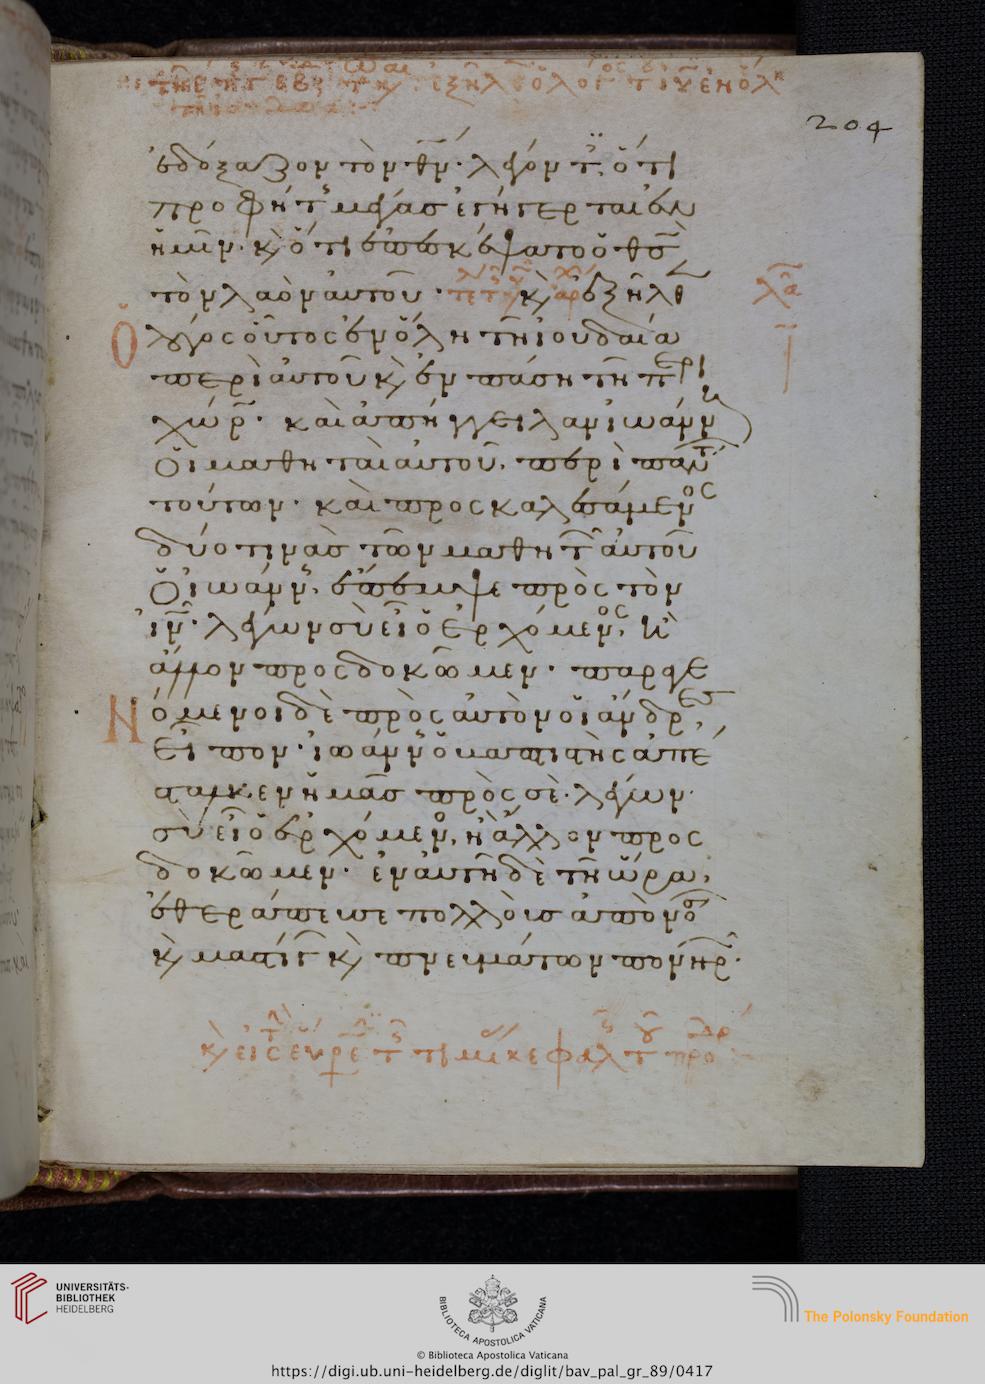 204
ἐδόξαζον τὸν θν̄· λέγοντ ὅτι
προφήτ μέγας ἐγήγερται ἐν
ἡμῖν· κ ὅτι ἐπεσκέψατο ὁ θσ̄
τὸν λαὸν αὐτοῦ· κ ἐξῆλθ
Ὁ λόγος οὗτος ἐν ὅλη τῆ ἰουδαία
περὶ αὐτοῦ κ ἐν πάση τῆ περι
χώρ· καὶ ἀπήγγειλαν ἰωάνν
Οἱ μαθηταὶ αὐτοῦ, περὶ πάντ
τούτων· καὶ προσκαλεσάμενος
δύο τινὰσ τῶν μαθητ αὐτοῦ
Ὁ ἰωάνν, ἔπεμψε πρὸς τὸν
ἰν̄· λέγων σὺ εἶ ὁ ἐρχόμενος, ἢ
ἄλλον προςδοκῶμεν· παραγε
Νόμενοι δὲ πρὸς αὐτὸν οἱ ἄνδρες,
εἶπον· ἰωάνν ὁ βαπτιστὴς ἀπέ
σταλκεν ἡμᾶσ πρὸς σὲ· λέγων·
σὺ εἶ ὁ ἐρχόμεν, ἢ ἄλλον προς
δοκῶμεν· ἐν αὐτῆ δὲ τῆ ὥρα,
ἐθεράπευσε πολλοὺσ ἀπὸ νόσ
κ μαστίγ κ πνευμάτων πονηρ·
UNIVERSITÄTS-
BIBLIOTHEK
HEIDELBERG
BIBLIOTECA APOSTOLICA VATICANA
The Polonsky Foundation
© Biblioteca Apostolica Vaticana
https://digi.ub.uni-heidelberg.de/diglit/bav_pal_gr_89/0417